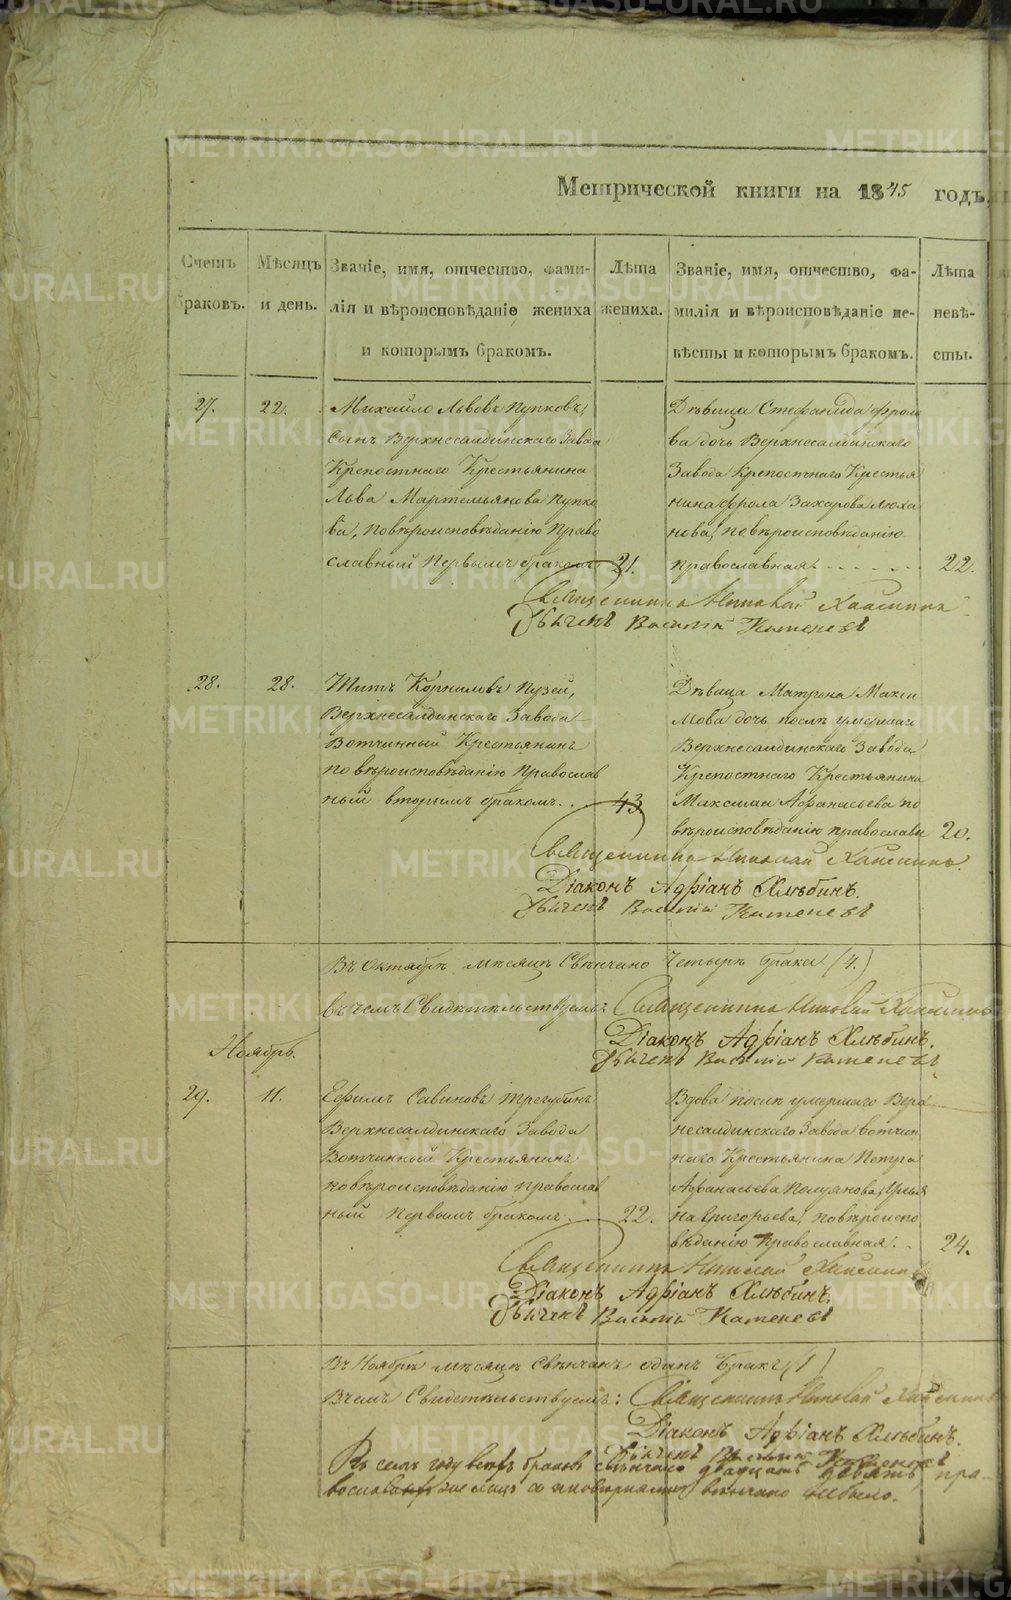 Метрической книги на 1845 годъ,
Счетъ браковъ.
Мѣсяцъ и день.
Званіе, имя, отчество, фами-
лія и вѣроисповѣданіе жениха
и которымъ бракомъ.
Лѣта жениха.
Званіе, имя, отчество, фа-
милія и вѣроисповѣданіе не-
вѣсты и которымъ бракомъ.
Лѣта невѣ-
сты.
27.
22.
Михайло Львовъ Пупковъ,
сынъ Верхнесалдинскаго Завода
Крепостнаго Крестьянина
Льва Мартемьянова Пупко
ва, по вѣроисповѣданію Право
славный Первымъ бракомъ
21.
Дѣвица Стефанида Фрола
ва дочь Верхнесалдинскаго
Завода Крепостнаго Крестья
нина Фрола Захарова
нова, по вѣроисповѣданію
православная.
22.
Священникъ Николай
Василій Катеневъ
28.
28.
Титъ Корниловъ Пузей,
Верхнесалдинскаго Завода
Вотчинный Крестьянинъ
по вѣроисповѣданію Православ
ный вторымъ бракомъ.
43
Дѣвица Матрона Макси
мова дочь послѣ умершаго
Верхнесалдинскаго Завода
Крепостнаго Крестьянина
Максима Афанасьева по
вѣроисповѣданію православн
20.
Священникъ Николай
Діаконъ Адріанъ Хлѣбинъ.
Василій Катеневъ
Въ Октябрѣ мѣсяцѣ Свѣнчано Четыре брака (4.)
въ чемъ Свидѣтельствуемъ: Священникъ Николай
Діаконъ Адріанъ Хлѣбинъ.
Василій Катеневъ
Ноябрь.
29.
11.
Ефимъ Савиновъ Трегубинъ
Верхнесалдинскаго Завода
Вотчинный Крестьянинъ
по вѣроисповѣданію православ
ный первымъ бракомъ
22.
Вдова послѣ умершаго Верх
несалдинскаго Завода вотчин
наго Крестьянина Петра
Афанасьева
на Григорьева, по вѣроиспо
вѣданію Православная.
24.
Священникъ Николай
Діаконъ Адріанъ Хлѣбинъ.
Василій Катеневъ
Въ Ноябрѣ мѣсяцѣ Свѣнчанъ одинъ бракъ (1)
Въ чемъ Свидетельствуемъ: Священникъ Николай
Діаконъ Адріанъ Хлѣбинъ.
Василій Катеневъ
Въ семъ году всѣхъ браковъ свѣнчано двадцать девять, пра-
вославныхъ же лицъ съ иновѣрцами вѣнчано небыло.
METRIKI.GASO-URAL.RU